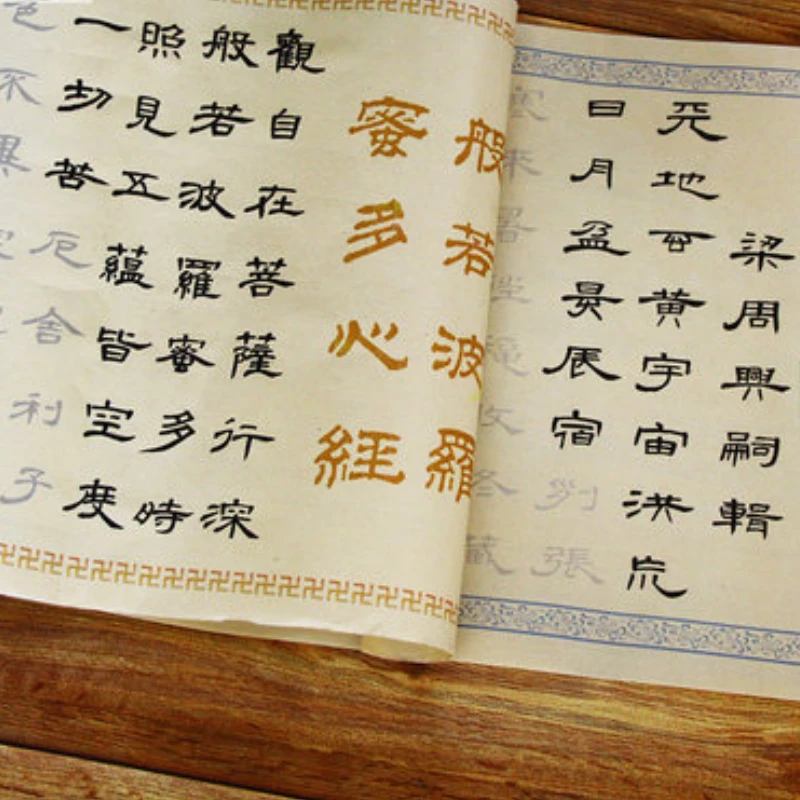 梁周興嗣輯
天地玄黃宇宙洪荒
日月盈昃辰宿列張
寒來暑往秋收冬藏
般若波羅
蜜多心經
觀自在菩薩行深
般若波羅蜜多時
照見五蘊皆空度
一切苦厄舍利子
色不異空